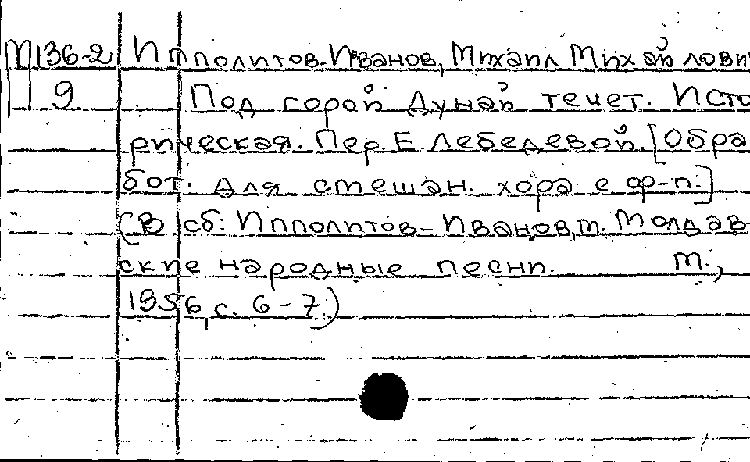 М136-2 Ипполитов-Иванов, Михаил Михайлови
9 Под горой Дунай течет. Исто
рическая. Пер. Е Лебедевой. [Обра
бот. для смешан. хора с ф-п.]
(В сб: Ипполитов-Иванов, м. Молдав
ские народные песни. М.,
1956, с. 6-7.)